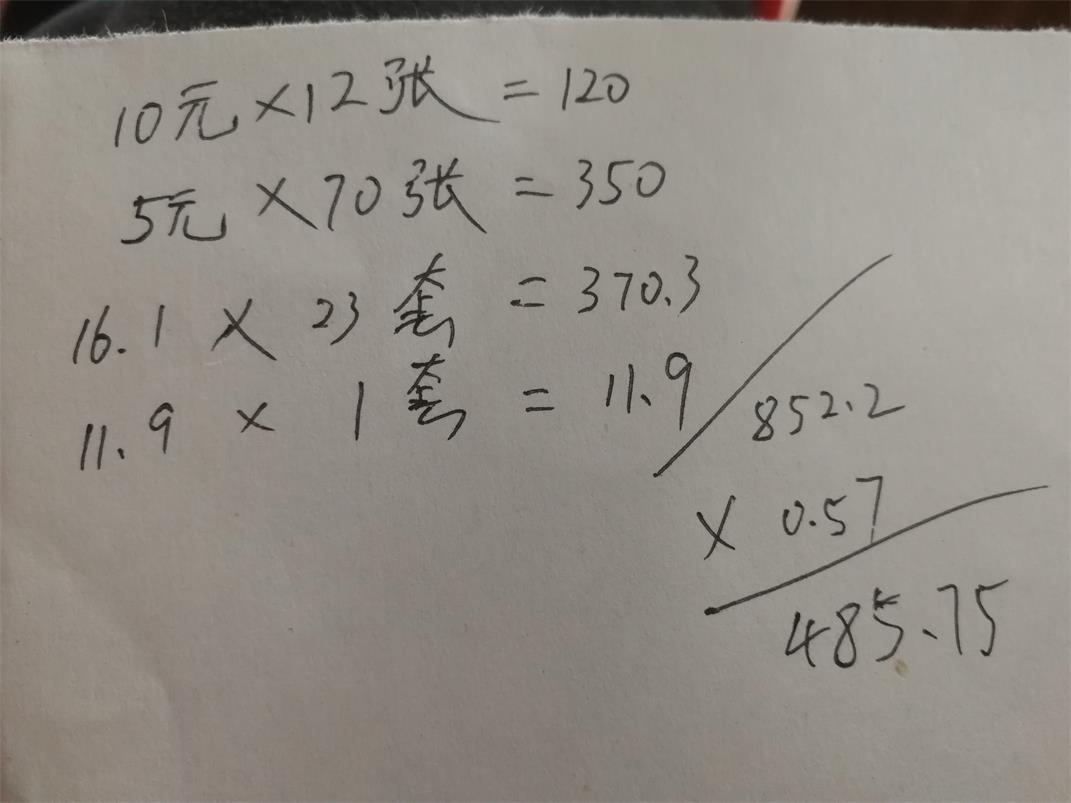 10元×12张=120
5元×70张=350
16.1×23套=370.3
11.9×1套=11.9
852.2
×0.57
485.75